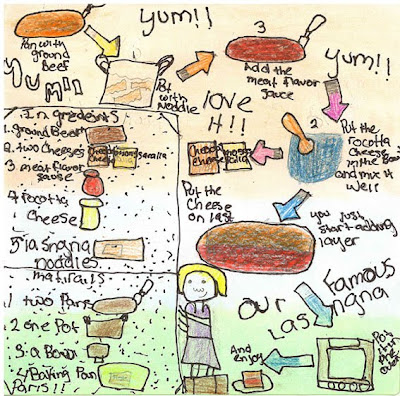 Yum!!
3
Pan with
ground
Beef
Yum!!
Put
with
Noodle
Add the
meat flavor
sauce
Yum!!
love
it!!
2
Put the
rocotta
Cheese
in the Bowl
and mix it
well
Chedder
cheese
Put the
Cheese
on last
you just
start adding
layer
Ingredeints
1. ground Beef
2. two cheeses
3 meat flavor
sause
4 rocotta
cheese
5 lasngna
noddles
matirails
1 two Pans
2 one Pot
3 a Bowl
4 Baking Pan
Pans!!
Our Famous
Lasngna
Put
it in
the
oven
And
enjoy